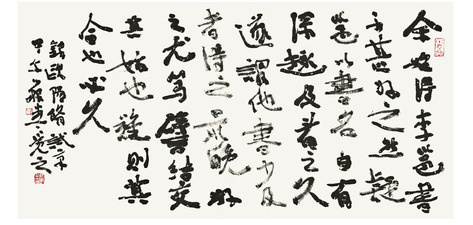 余始得李邕書
不甚好之然疑
邕以書名自有
深趣及看之久
遂謂他書少及
者得之最晚好
之尤篤譬結交
其始也難則其
合也必久
錄歐陽脩試筆
甲午